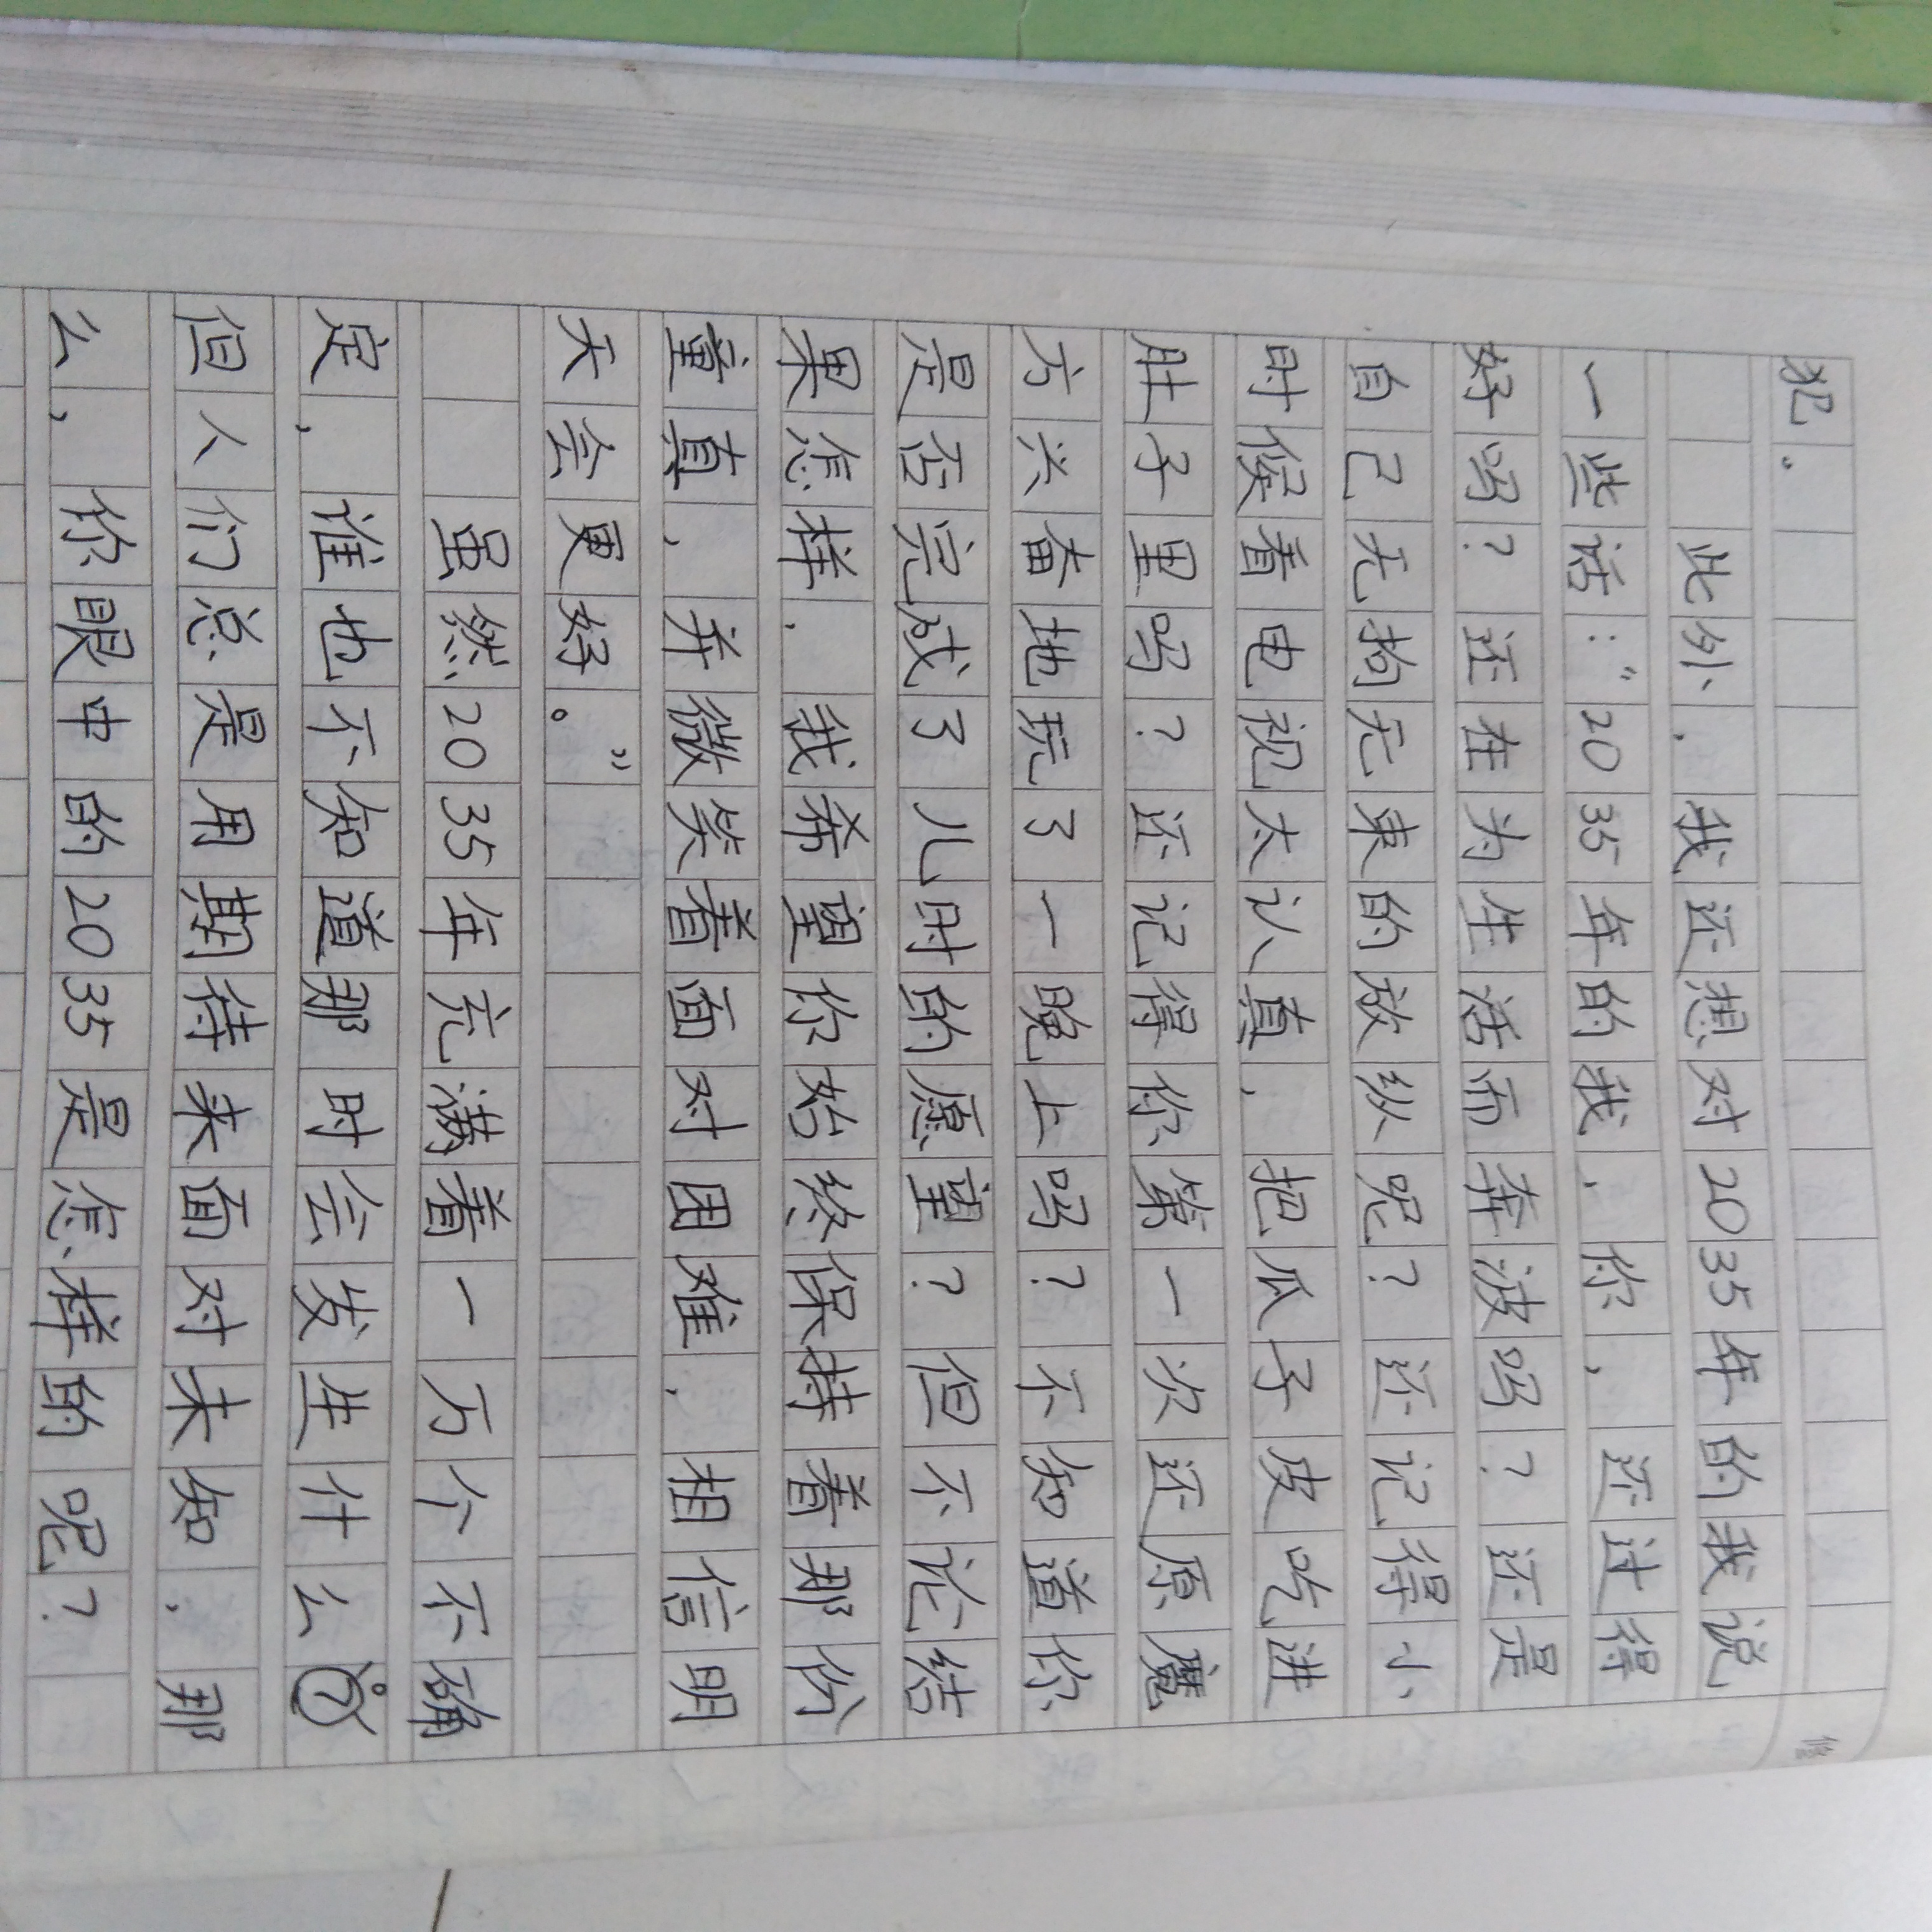 犯。
此外，我还想对2035年的我说
一些话：“2035年的我，你，还过得
好吗？还在为生活而奔波吗？还是
自己无拘无束的放纵呢？还记得小
时候看电视太认真，把瓜子皮吃进
肚子里吗？还记得你第一次还原魔
方兴奋地玩了一晚上吗？不知道你
是否完成了儿时的愿望？但不论结
果怎样，我希望你始终保持着那份
童真，并微笑着面对困难，相信明
天会更好。”
虽然2035年充满着一万个不确
定，谁也不知道那时会发生什么，
但人们总是用期待来面对未知，那
么，你眼中的2035是怎样的呢？